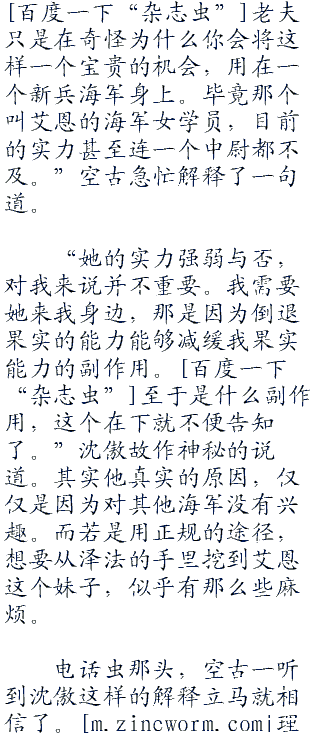 [百度一下“杂志虫”]老夫
只是在奇怪为什么你会将这
样一个宝贵的机会，用在一
个新兵海军身上。毕竟那个
叫艾恩的海军女学员，目前
的实力甚至连一个中尉都不
及。”空古急忙解释了一句
道。
“她的实力强弱与否，
对我来说并不重要。我需要
她来我身边，那是因为倒退
果实的能力能够减缓我果实
能力的副作用。[百度一下
“杂志虫”]至于是什么副作
用，这个在下就不便告知
了。”沈傲故作神秘的说
道。其实他真实的原因，仅
仅是因为对其他海军没有兴
趣。而若是用正规的途径，
想要从泽法的手里挖到艾恩
这个妹子，似乎有那么些麻
烦。
电话虫那头，空古一听
到沈傲这样的解释立马就相
信了。[m.zincworm.com|理